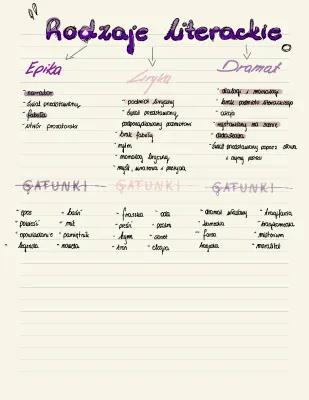 Rodzaje literackie
Epika
- narrator
- świat przedstawiony
- fabuła
- utwór prozatorski
Liryka
- podmiot liryczny
- świat przedstawiony
podporządkowany podmiotowi
- brak fabuły
- rytm
- monolog liryczny
- myśli, wrażenia i przeżycia
Dramat
- dialogi i monologi
- brak podmiotu literackiego
- akcja
- wystawiany na scenie
- didaskalia
- świat przedstawiony poprzez słowa
i czyny postaci
GATUNKI
- epos
- powieść
- opowiadanie
- legenda
- baśń
- mit
- pamiętnik
- nowela
GATUNKI
- fraszka
- pieśń
- hymn
- tren
- oda
- psalm
- sonet
- elegia
GATUNKI
- dramat właściwy
- komedia
- farsa
- tragedia
- tragifarsa
- misterium
- moralitet